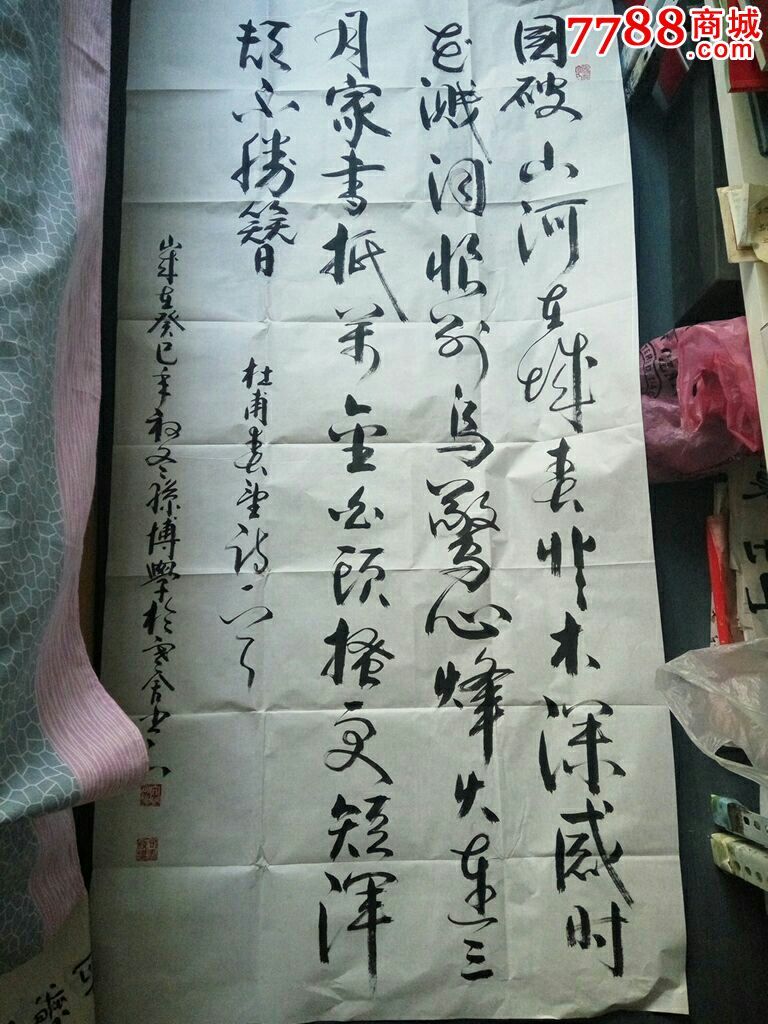 7788商城
.com
国破山河在城春草木深感时
花溅泪恨别鸟惊心烽火连三
月家书抵万金白头搔更短浑
欲不勝簪
杜甫春望诗一首
癸巳年初冬孫博學於寒舍